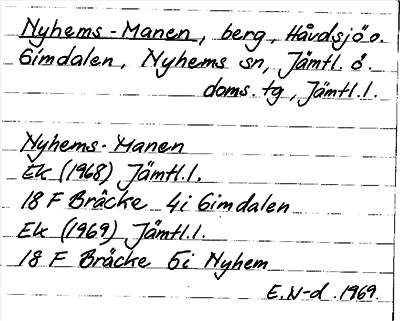 Nyhems-Manen, berg, Håvdsjö o.
Gimdalen, Nyhems sn, Jämtl. ö.
doms. tg, Jämtl.l.
Nyhems-Manen
Ek (1968) Jämtl.l.
18 F Bräcke 4i Gimdalen
Ek (1969) Jämtl.l.
18 F Bräcke 5i Nyhem
E.N-d. 1969.